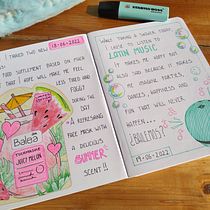 I TRIED TWO NEW
18-06-2022
FOOD SUPPLEMENT BASED ON MUSH
THAT I HOPE WILL MAKE ME FEEL
LESS TIRED AND
FOGGY
DURING THE
DAY.
A REFRESHING
FACE MASK WITH
A DELICIOUS
SUMMER
SCENT!!
Balea
TUCHMASKE
JUICY MELON
WHILE TAKING A SHOWER TODAY
I LOVE TO LISTEN TO
LATIN MUSIC
IT MAKES ME HAPPY BUT
ALSO SAD BECAUSE IT MAKES
ME IMAGINE PARTIES,
DANCES, HAPPINESS AND
FUN THAT WILL NEVER
HAPPEN...
¿BAILEMOS?
19-06-2022
STABILO BOSS